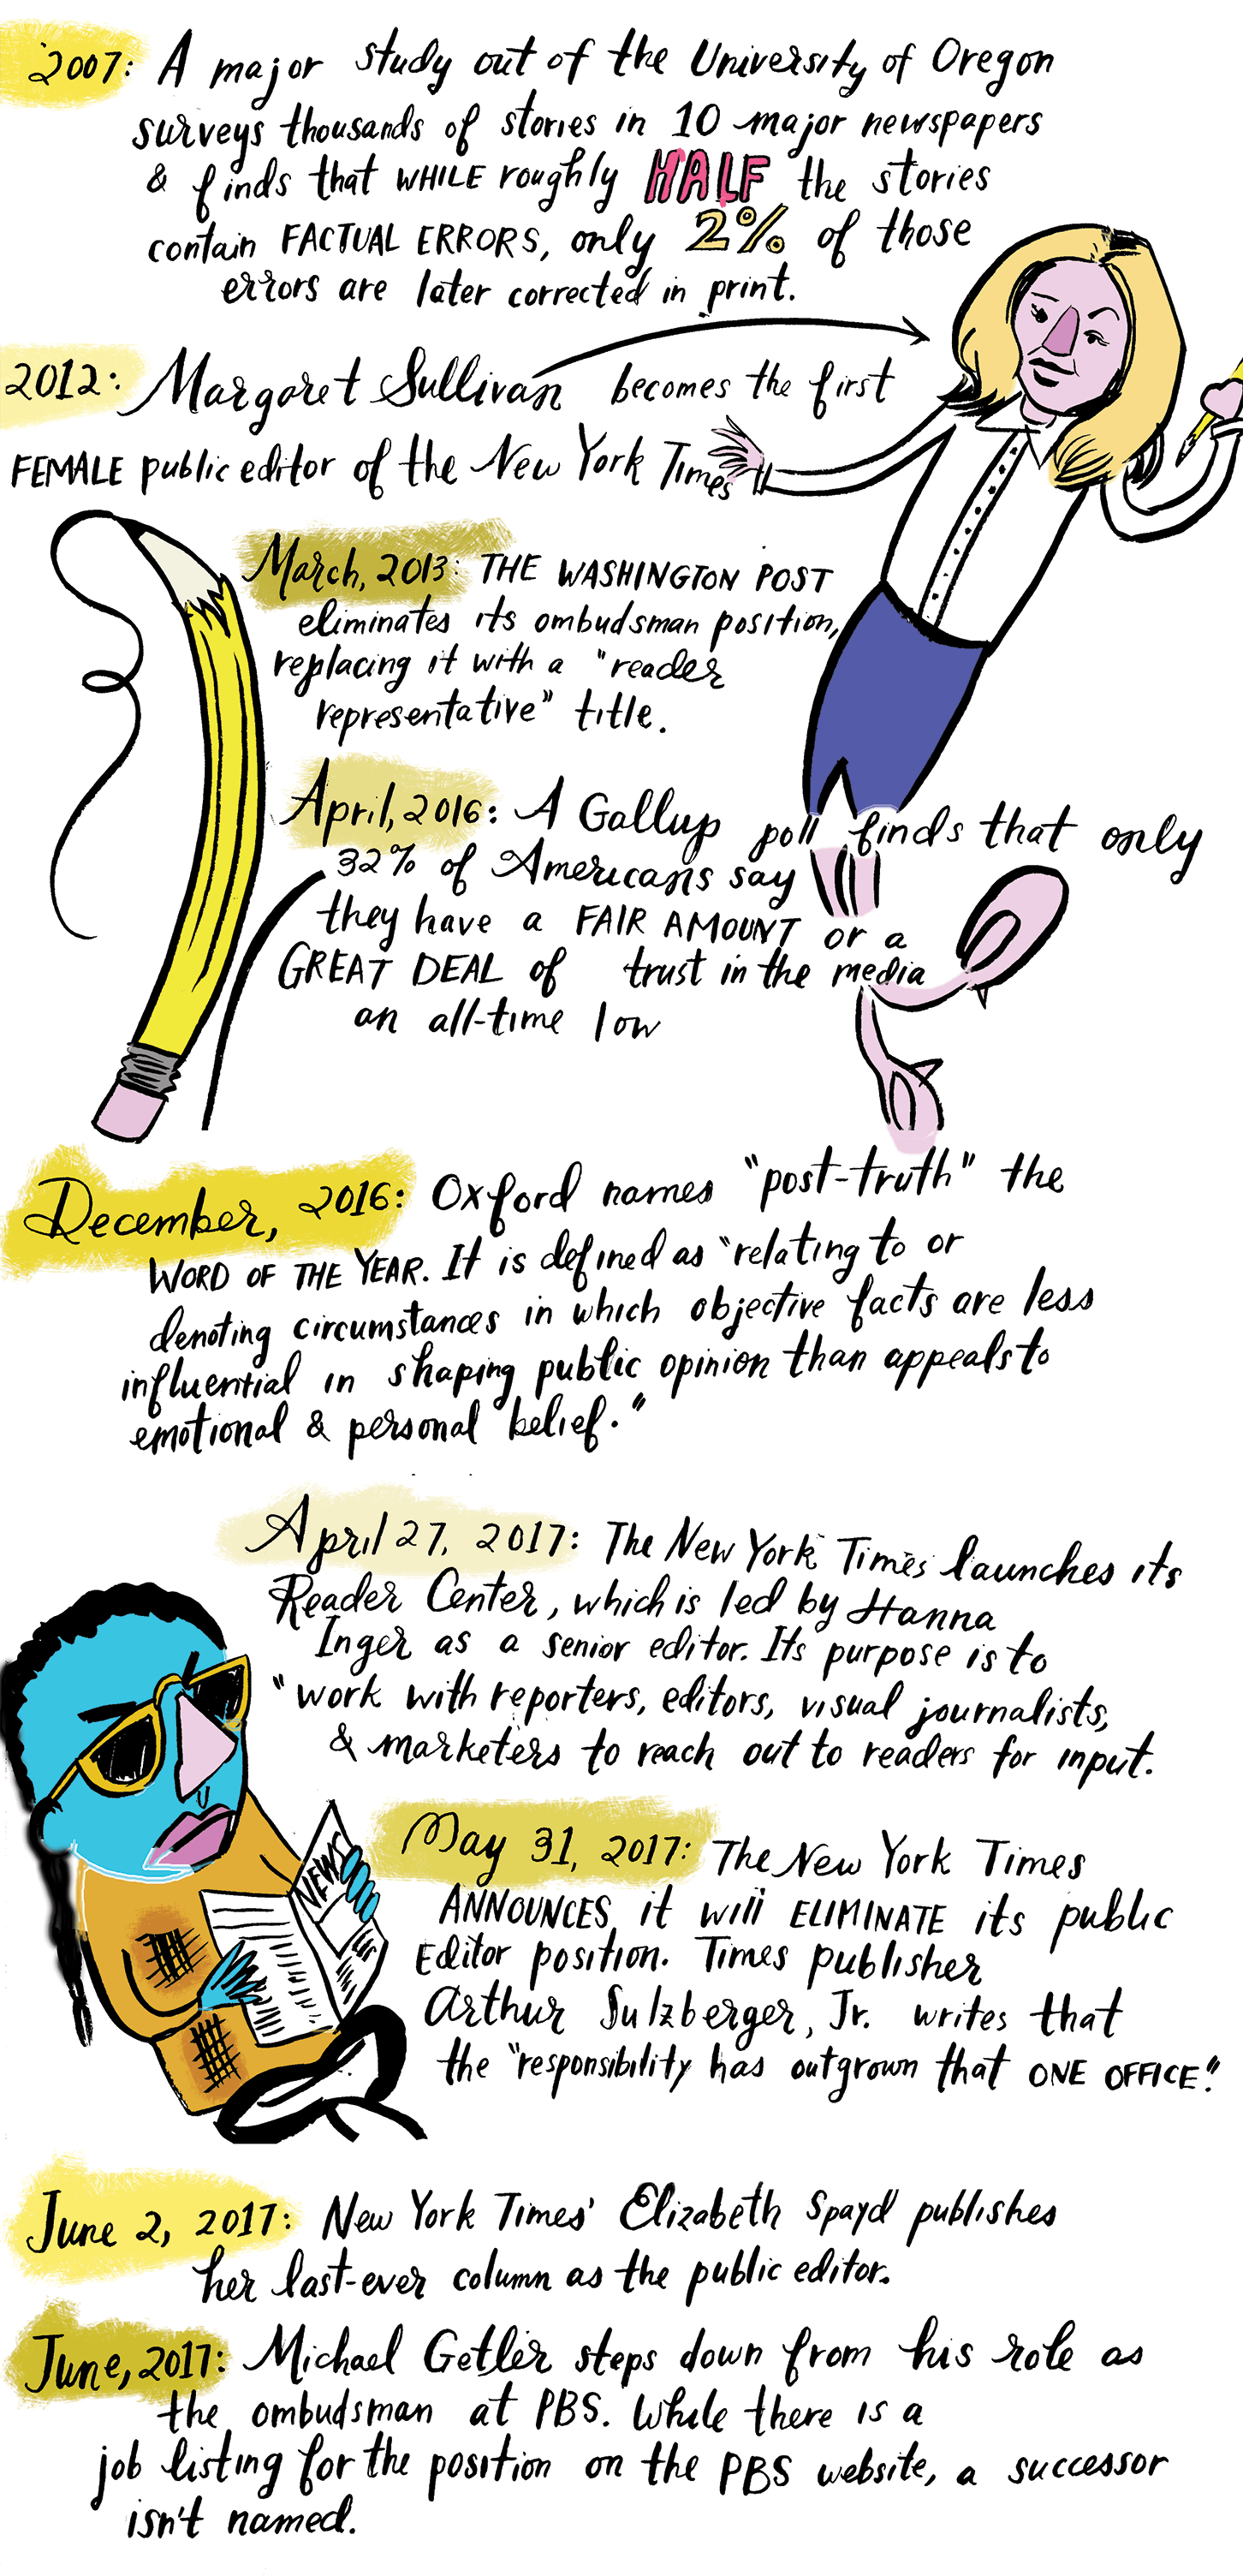 2007: A major study out of the University of Oregon
surveys thousands of stories in 10 major newspapers
& finds that WHILE roughly HALF the stories
contain FACTUAL ERRORS, only 2% of those
errors are later corrected in print.
2012: Margaret Sullivan becomes the first
FEMALE public editor of the New York Times
March, 2013: THE WASHINGTON POST
eliminates its ombudsman position,
replacing it with a "reader
representative" title.
April, 2016: A Gallup poll finds that only
32% of Americans say
they have a FAIR AMOUNT or a
GREAT DEAL of trust in the media
an all-time low
December, 2016: Oxford names "post-truth" the
WORD OF THE YEAR. It is defined as "relating to or
denoting circumstances in which objective facts are less
influential in shaping public opinion than appeals to
emotional & personal belief."
April 27, 2017: The New York Times launches its
Reader Center, which is led by Hanna
Inger as a senior editor. Its purpose is to
"work with reporters, editors, visual journalists,
& marketers to reach out to readers for input.
NEWS
May 31, 2017: The New York Times
ANNOUNCES it will ELIMINATE its public
Editor position. Times publisher
Arthur Sulzberger, Jr. writes that
the "responsibility has outgrown that ONE OFFICE."
June 2, 2017: New York Times' Elizabeth Spayd publishes
her last-ever column as the public editor.
June, 2017: Michael Getler steps down from his role as
the ombudsman at PBS. While there is a
job listing for the position on the PBS website, a successor
isn't named.